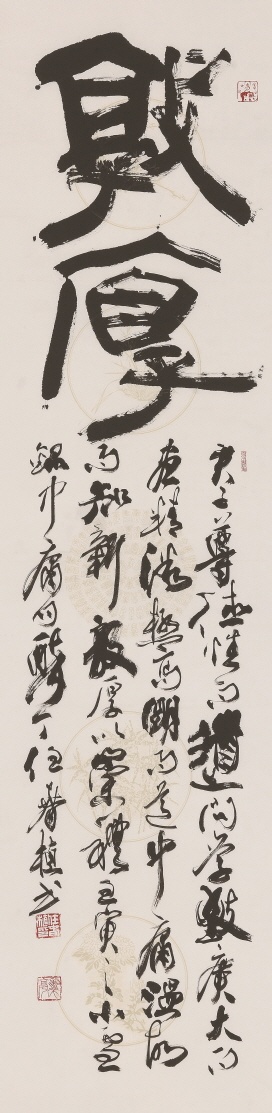 敦厚
君子尊德性而道問學致廣大而
盡精微極高明而道中庸溫故
而知新敦厚以崇禮壬寅之小雪
錄中庸句 書